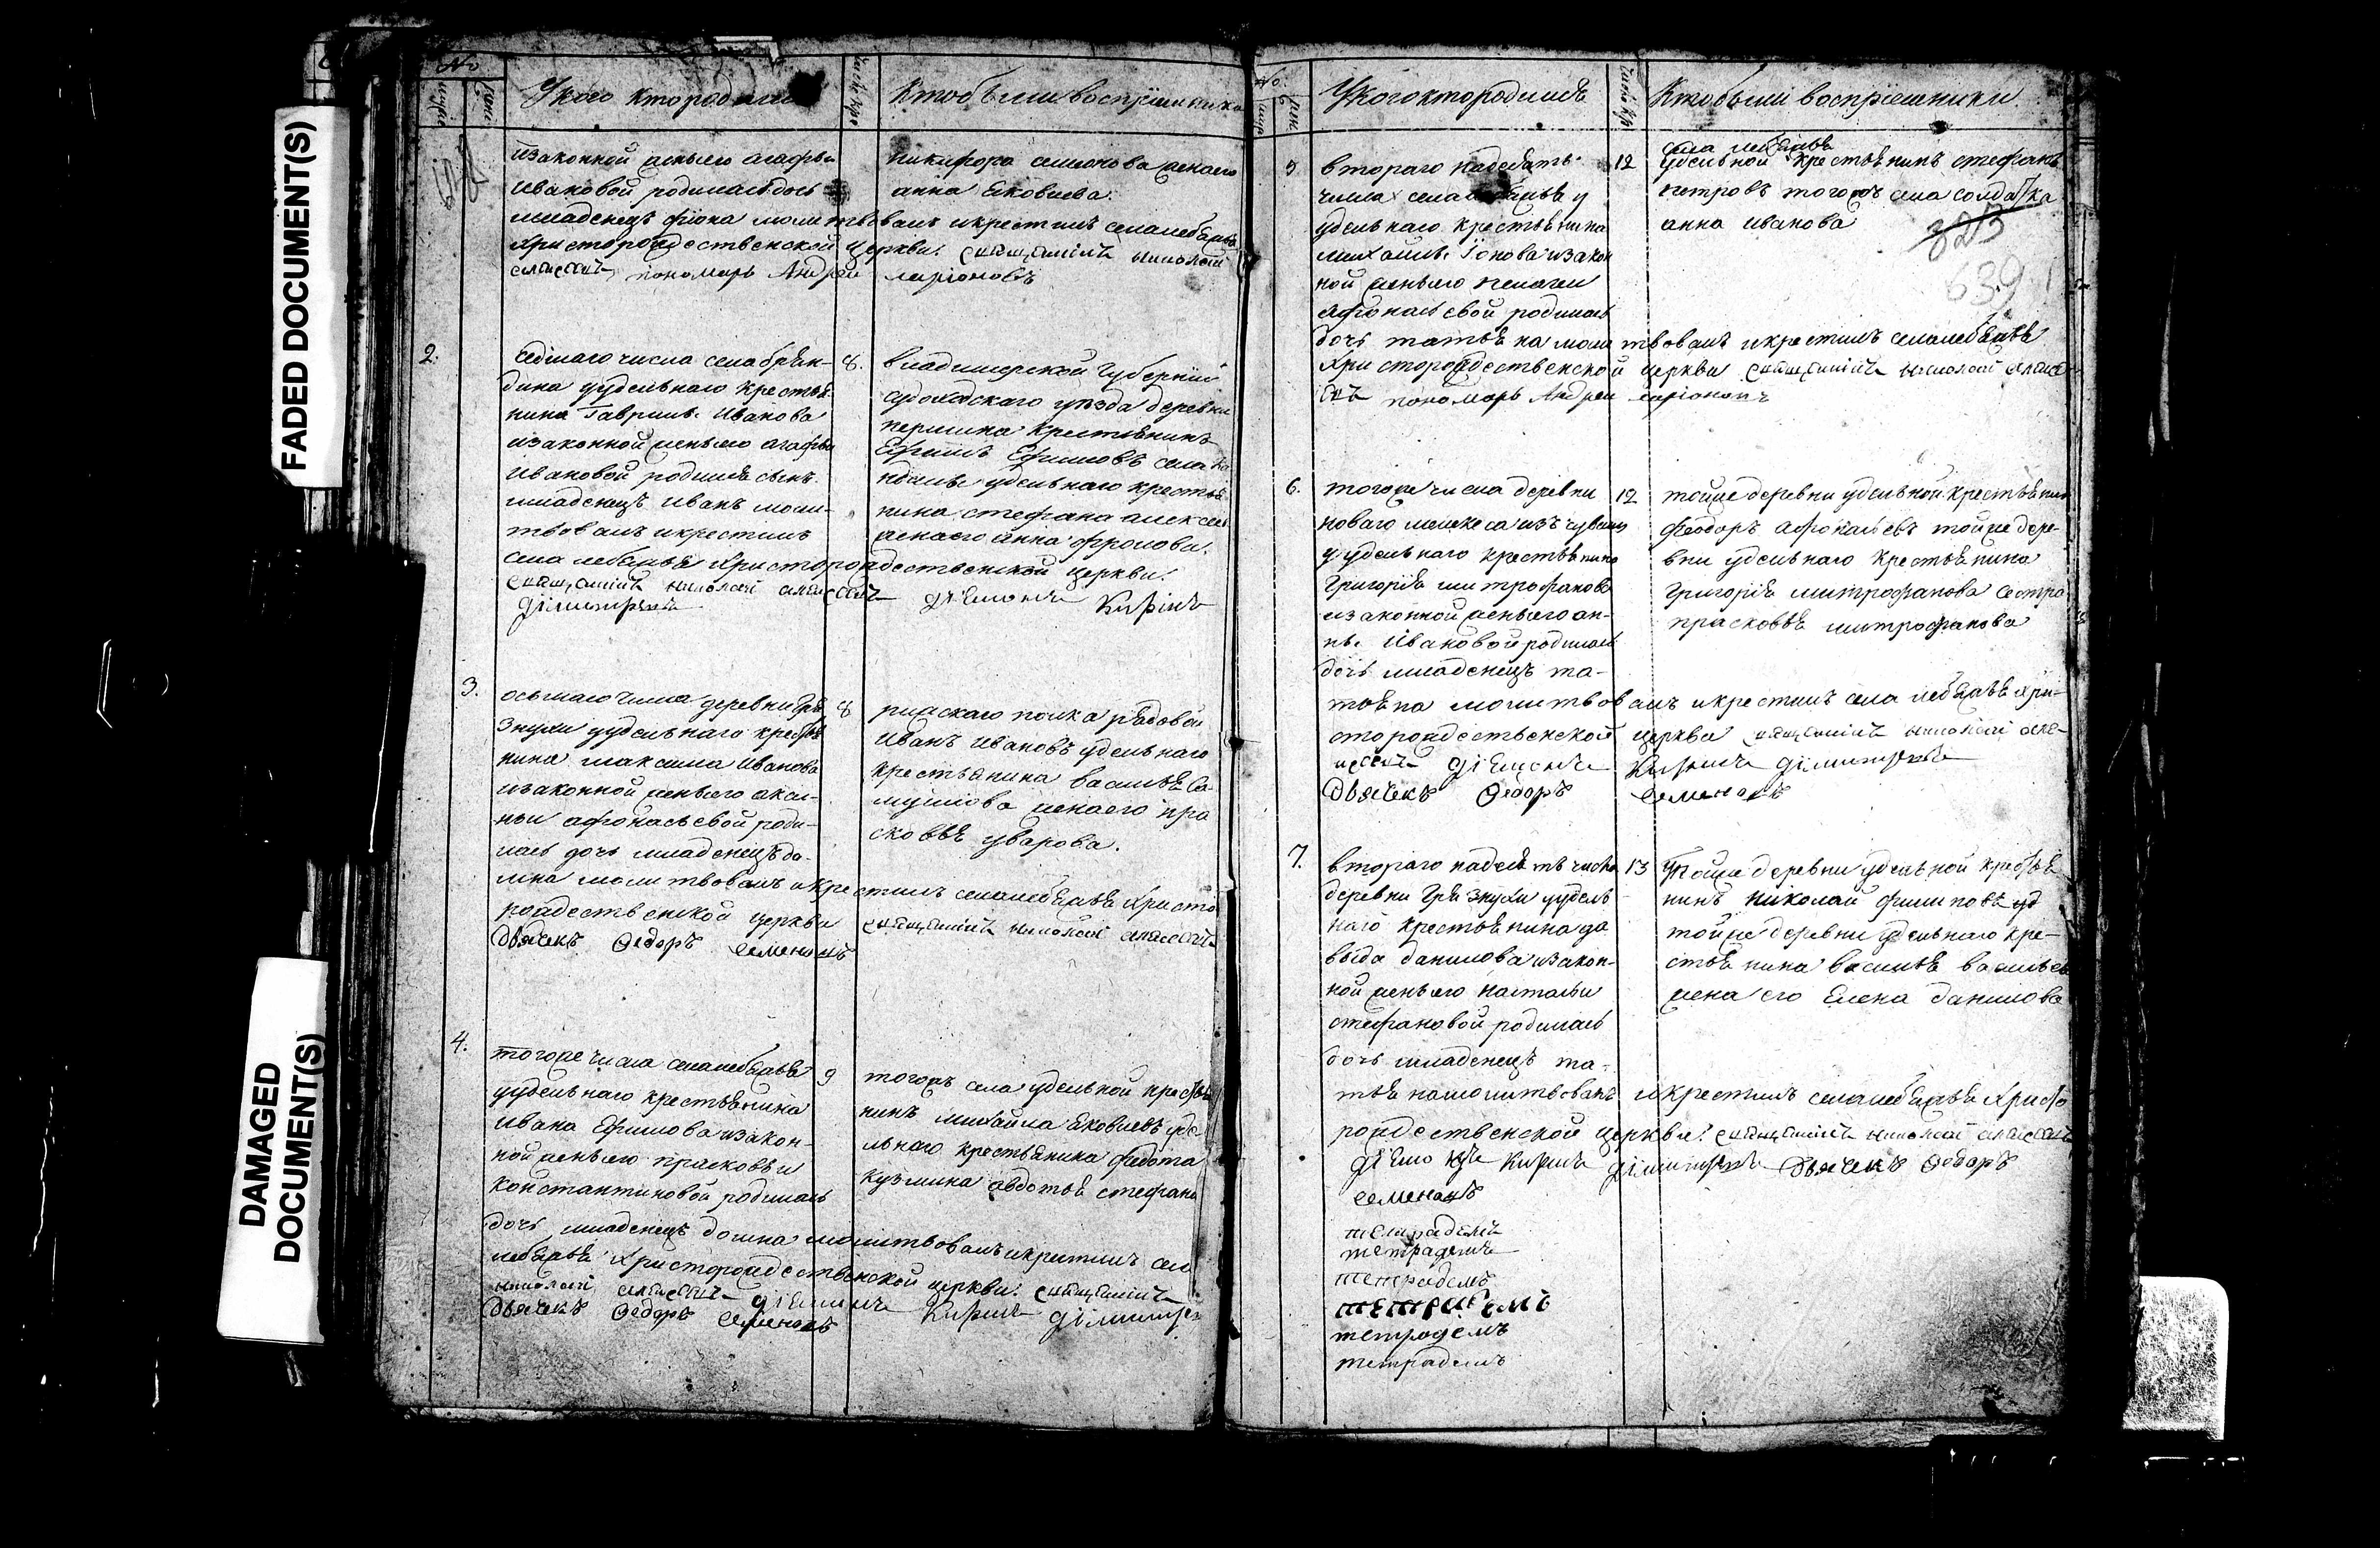 FADED DOCUMENT(S)
DAMAGED DOCUMENT(S)
№
У кого кто родился
Кто были восприемники
изаконной жены его агафьи
ивановой родиласьдочь
младенецъ фiокла молитвовалъ икрестилъ селалебяжья
христорождественской церкви: священникъ николай алексеевъ
пономарь Андреи ларiоновъ
никифора семионова женаего
анна Яковлева.
2.
седмаго числа села брян-
дина уудельнаго крестья
нина Гаврилы Иванова
изаконной жены его агафьи
ивановой родился сынъ
младенецъ иванъ моли-
твовалъ икрестилъ
села лебяжья христорождественской церкви.
священникъ николай алексеевъ дiяконъ Кирилъ
дiмитрiевъ
8.
владимерской Губернiи
судогодскаго уезда деревни
першина крестьянинъ
Ефимъ Ефимовъ села ка
ндалы удельнаго крестья
нина стефана алексеев
женаего анна фролова.
3.
осьмаго числа деревни гря
знухи уудельнаго крестья
нина максима иванова
изаконной жены его акси-
ньи афонасьевой роди-
лась дочь младенецъ до-
мна молитвовалъ икрестилъ селалебяжья христо
рождественской церкви священникъ николай алексеевъ
Дьячекъ Ѳедоръ семеновъ
8
рижскаго полка рядовой
иванъ ивановъ удельнаго
крестьянина василья са-
муилова женаего пра
сковья уварова.
4.
тогоже числа селалебяжья
уудельнаго крестьянина
ивана Ефимова изакон-
ной жены его прасковьи
константиновой родилась
дочь младенецъ домна молитвовалъ икрестилъ села
лебяжья христорождественской церкви: священникъ
николай алексеевъ дiяконъ Кирилъ дiмитрiев
Дьячекъ Ѳедоръ семеновъ
9
тогожъ села удельной крестья
нинъ михайла яковлевъ уде
льнаго крестьянина федота
кузмина авдотья стефано
№
У кого кто родился
Кто были восприемники.
5
втораго надесять
числа села лебяжья у
удельнаго крестьянина
михайлы Iонова изакон
ной жены его пелагеи
афонасьевой родилась
дочь татьяна молитвовалъ икрестилъ селалебяжья
христорождественской церкви священникъ николай алексе
евъ пономарь Андреи ларiоновъ
12
села лебяжья
удельной крестьянинъ стефанъ
петровъ тогожъ села солдатка
анна иванова
323
639
6.
тогоже числа деревни
новаго мелекеса изъ чувашъ
уудельнаго крестьянина
Григорiя митрофанова
изаконной жены его ан-
ны ивановой родилась
дочь младенецъ та-
тьяна молитвовалъ икрестилъ села лебяжья хри-
сторождественской церкви священникъ николай але-
ксеевъ дiяконъ Кирилъ дiмитрiевъ
Дьячекъ Ѳедоръ семеновъ
12
тойже деревни удельной крестьянин
феодоръ афонасьевъ тойже дере-
вни удельнаго крестьянина
Григорiя митрофанова сестра
прасковья митрофанова
7.
втораго надесять числа
деревни Грязнухи уудель
наго крестьянина да
выда данилова изакон-
ной жены его натальи
стефановой родилась
дочь младенецъ та-
тьяна молитвовалъ икрестилъ селалебяжья христо
рождественской церкви: священникъ николай алексеевъ
дiяконъ Кирилъ дiмитрiевъ Дьячекъ Ѳедоръ
семеновъ
13
тойже деревни удельной крестья
нинъ николай филиповъ уд
тойже деревни удельнаго кре-
стьянина василья васильев
жена его Елена данилова
тетраделъ
тетраделъ
тетраделъ
тетраделъ
тетраделъ
тетраделъ